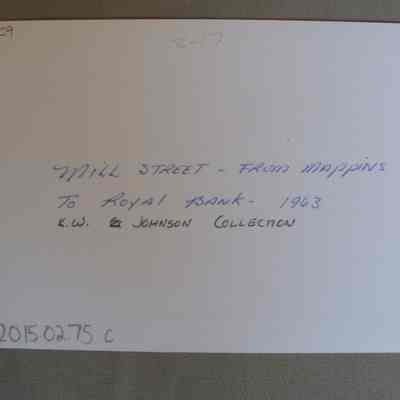 29
R-17
MILL STREET - FROM MAPPINS
TO ROYAL BANK - 1963
K.W. & JOHNSON COLLECTION
20150275 C